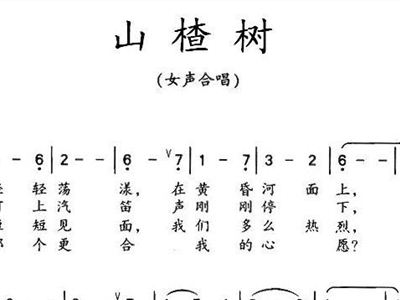 山楂树
(女声合唱)
- 6 | 2 - - 6 - 7 | 1 - 7 | 3 - 2 | 6 -
轻荡漾，在黄昏河面上，
上汽笛声刚刚停下，
短见面，我们多么热烈，
个更合我的心愿？